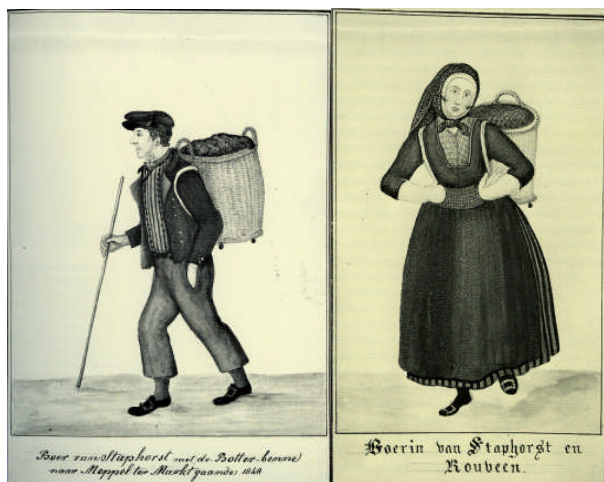 Boer van Staphorst met de Botter-benne
naar Meppel ter Markt gaande: 1849
Boerin van Staphorst en
Rouveen.